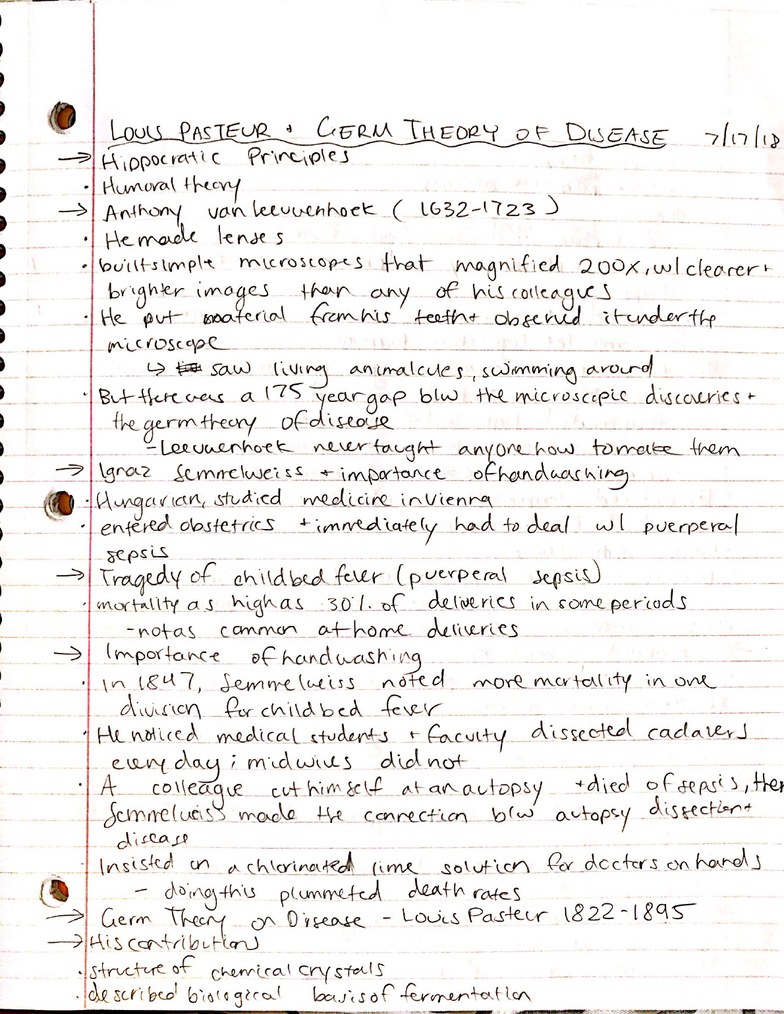 LOUIS PASTEUR + GERM THEORY OF DISEASE 7/17/18
→ Hippocratic Principles
· Humoral theory
→ Anthony van Leeuwenhoek (1632-1723)
· He made lenses
· built simple microscopes that magnified 200x, w/ clearer +
brighter images than any of his colleagues
· He put material from his teeth + observed it under the
microscope
↳ saw living animalcules, swimming around
· But there was a 175 year gap b/w the microscopic discoveries +
the germ theory of disease
- Leeuwenhoek never taught anyone how to make them
→ Ignaz Semmelweiss + importance of handwashing
· Hungarian, studied medicine in Vienna
· entered obstetrics + immediately had to deal w/ puerperal
sepsis
→ Tragedy of childbed fever (puerperal sepsis)
· mortality as high as 30% of deliveries in some periods
- not as common at home deliveries
→ Importance of handwashing
· In 1847, Semmelweiss noted more mortality in one
division for childbed fever
· He noticed medical students + faculty dissected cadavers
every day; midwives did not
· A colleague cut himself at an autopsy + died of sepsis, then
Semmelweiss made the connection b/w autopsy dissection +
disease
· Insisted on a chlorinated lime solution for doctors on hands
- doing this plummeted death rates
→ Germ Theory on Disease - Louis Pasteur 1822-1895
→ His contributions
· structure of chemical crystals
· described biological basis of fermentation